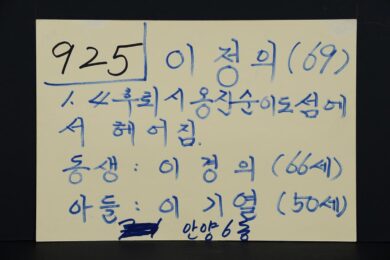 925 이정의(69)
1.4후퇴시 옹진순이도섬에
서 헤어짐.
동생: 이경의 (66세)
아들: 이기열 (50세)
안양6동